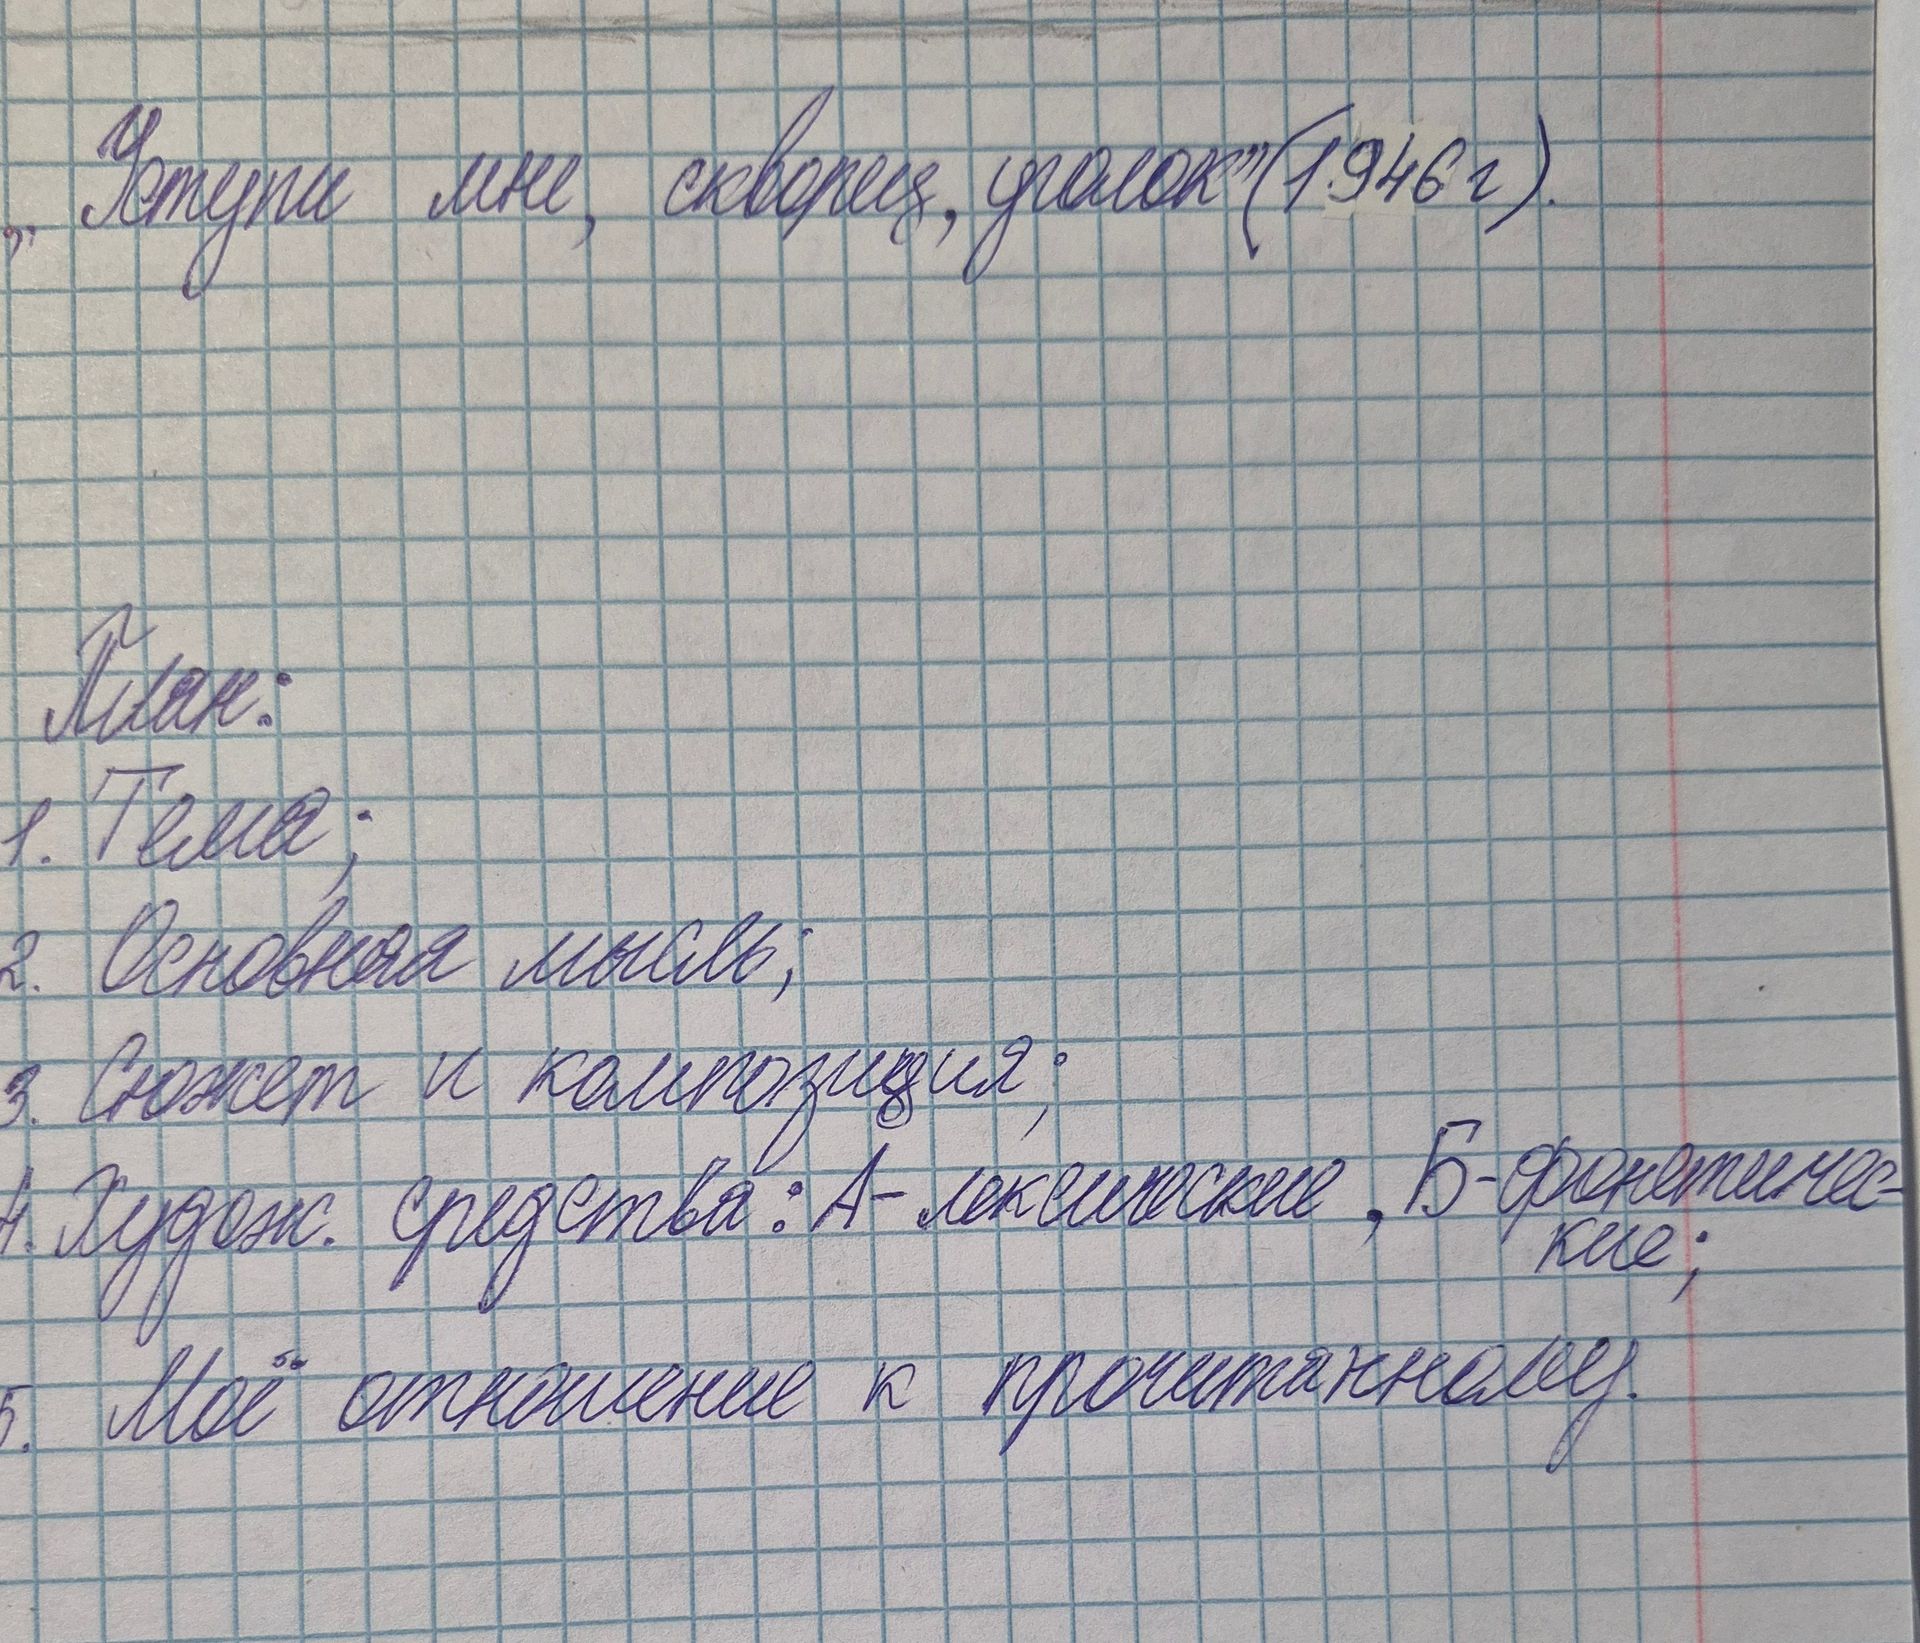 „Уступи мне, скворец, уголок" (1946г).
План:
1. Тема;
2. Основная мысль;
3. Сюжет и композиция;
4. Худож. средства: А- лексические, Б-фонетичес-
кие;
5. Моё отношение к прочитанному.